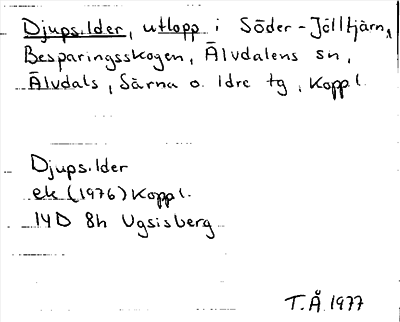 Djupsilder, utlopp i Söder-Jölltjärn,
Besparingsskogen, Älvdalens sn,
Älvdals, Särna o. Idre tg, Koppl.
Djupsilder
ek (1976) Koppl.
14D 8h Ugsisberg
T.Å 1977